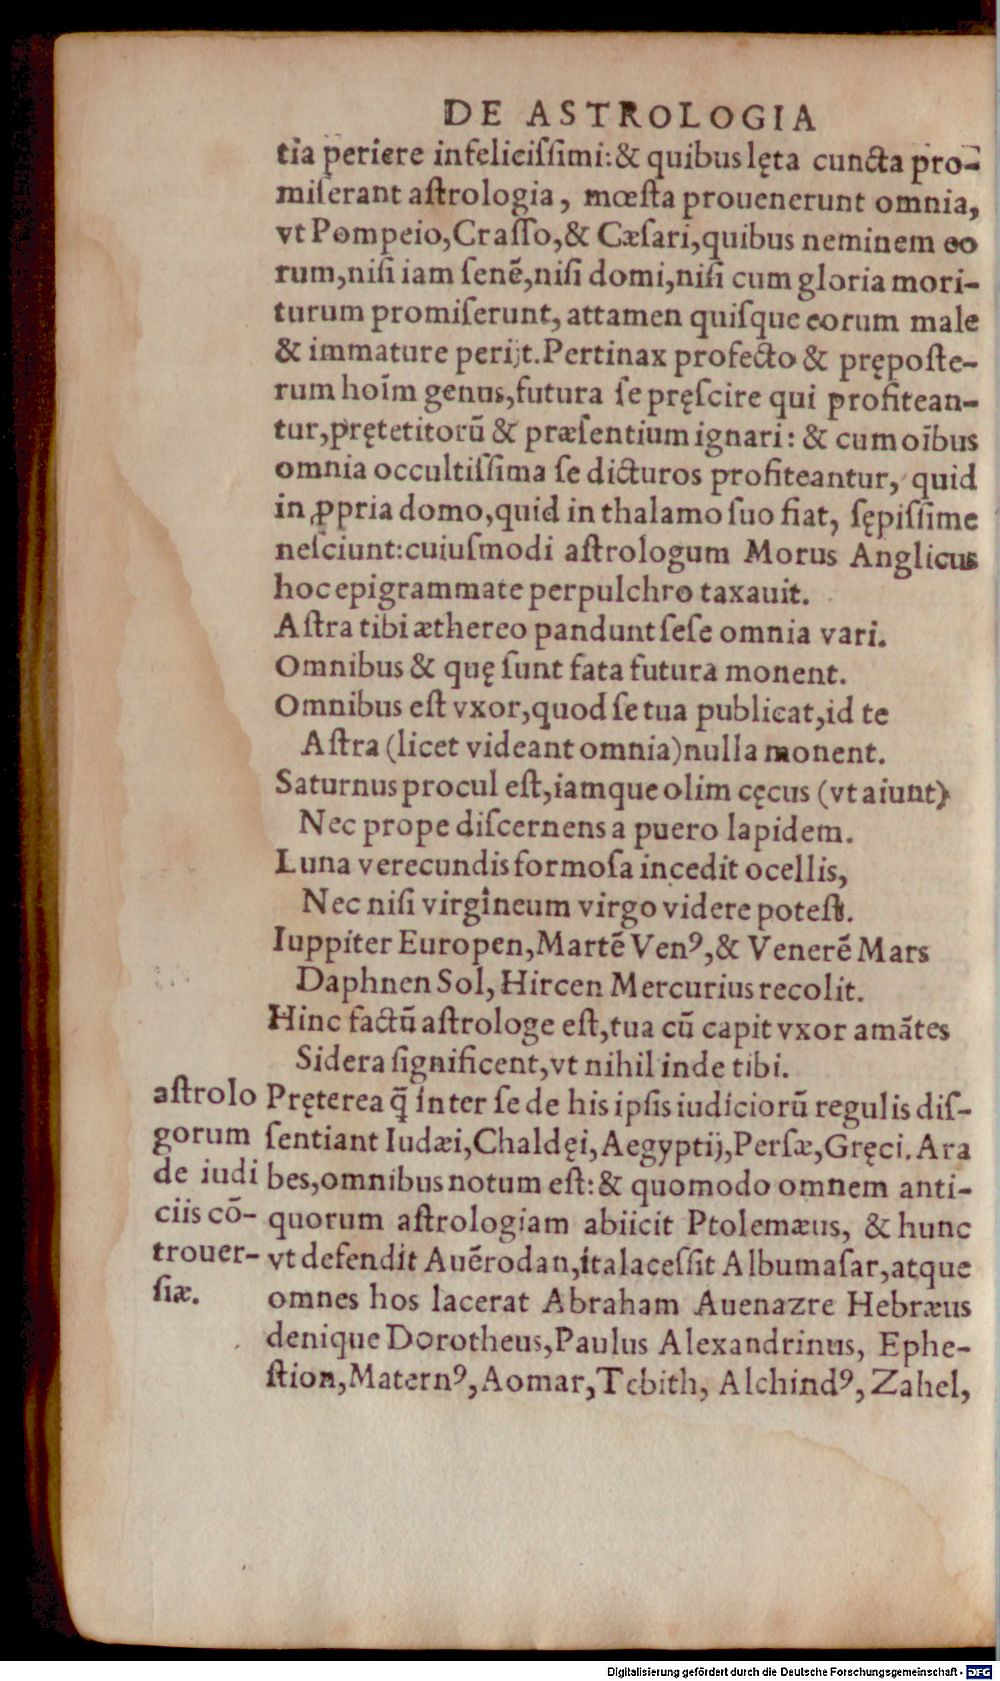 DE ASTROLOGIA
tia periere infeliciſſimi:& quibus lęta cuncta pro-
miſerant aſtrologia, mœſta prouenerunt omnia,
vt Pompeio,Craſſo,& Cæſari,quibus neminem eo
rum,niſi iam ſenē,niſi domi,niſi cum gloria mori-
turum promiſerunt, attamen quiſque eorum male
& immature perijt.Pertinax profecto & prępoſte-
rum hoīm genus,futura ſe pręſcire qui profitean-
tur,prętetitorū & præſentium ignari: & cum oībus
omnia occultiſſima ſe dicturos profiteantur, quid
in ꝓpria domo,quid in thalamo ſuo fiat, ſępiſſime
neſciunt:cuiuſmodi aſtrologum Morus Anglicus
hoc epigrammate perpulchro taxauit.
Aſtra tibi æthereo pandunt ſeſe omnia vari.
Omnibus & quę ſunt fata futura monent.
Omnibus eſt vxor,quod ſe tua publicat,id te
Aſtra (licet videant omnia)nulla monent.
Saturnus procul eſt,iamque olim cęcus (vt aiunt)
Nec prope diſcernens a puero lapidem.
Luna verecundis formoſa incedit ocellis,
Nec niſi virgineum virgo videre poteſt.
Iuppiter Europen,Martē Venꝰ,& Venerē Mars
Daphnen Sol, Hircen Mercurius recolit.
Hinc factū aſtrologe eſt,tua cū capit vxor amātes
Sidera ſignificent,vt nihil inde tibi.
Pręterea q̄ inter ſe de his ipſis iudiciorū regulis diſ-
ſentiant Iudæi,Chaldęi,Aegyptij,Perſæ,Gręci.Ara
bes,omnibus notum eſt:& quomodo omnem anti-
quorum aſtrologiam abiicit Ptolemæus, & hunc
vt defendit Auērodan,ita laceſſit Albumaſar,atque
omnes hos lacerat Abraham Auenazre Hebræus
denique Dorotheus,Paulus Alexandrinus, Ephe-
ſtion,Maternꝰ,Aomar,Tebith, Alchindꝰ,Zahel,
aſtrolo
gorum
de iudi
ciis cō-
trouer-
ſiæ.
Digitalisierung gefördert durch die Deutsche Forschungsgemeinschaft - DFG